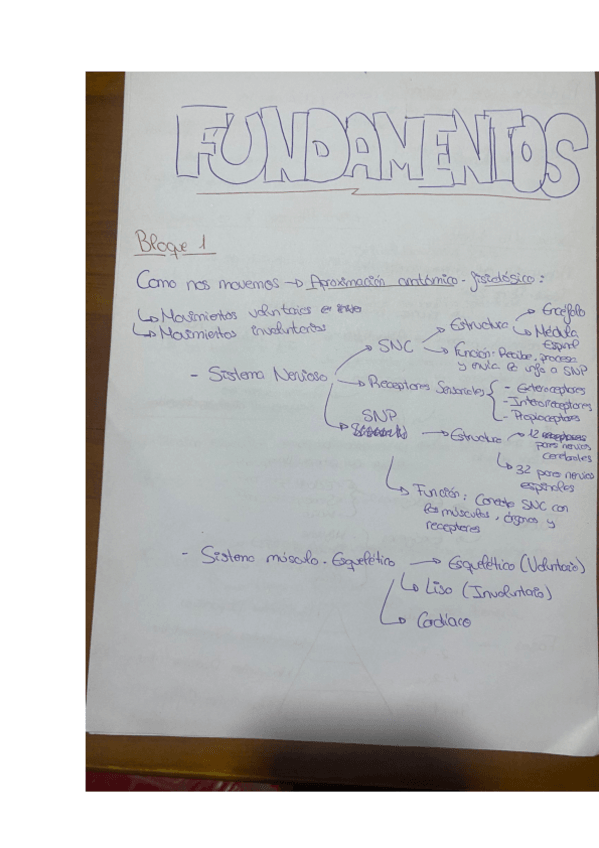 FUNDAMENTOS
Bloque 1
Como nos movemos → Aproximación anatómico-fisiológico:
↳ Movimientos voluntarios e
↳ Movimientos involuntarios
- Sistema Nervioso
→ SNC
→ Estructura
→ Encéfalo
↳ Médula
Espinal
→ Función: Recibe, procesa
y envía la info a SNP
→ Receptores Sensoriales {
- Exteroceptores
- Interoceptores
- Propioceptores
↳ SNP
→ Estructura
→ 12
pares nervios
cerebrales
↳ 32 pares nervios
espinales
↳ Función: Conecta SNC con
los músculos, órganos y
receptores
- Sistema músculo-Esquelético → Esquelético (Voluntario)
↳ Liso (Involuntario)
↳ Cardíaco